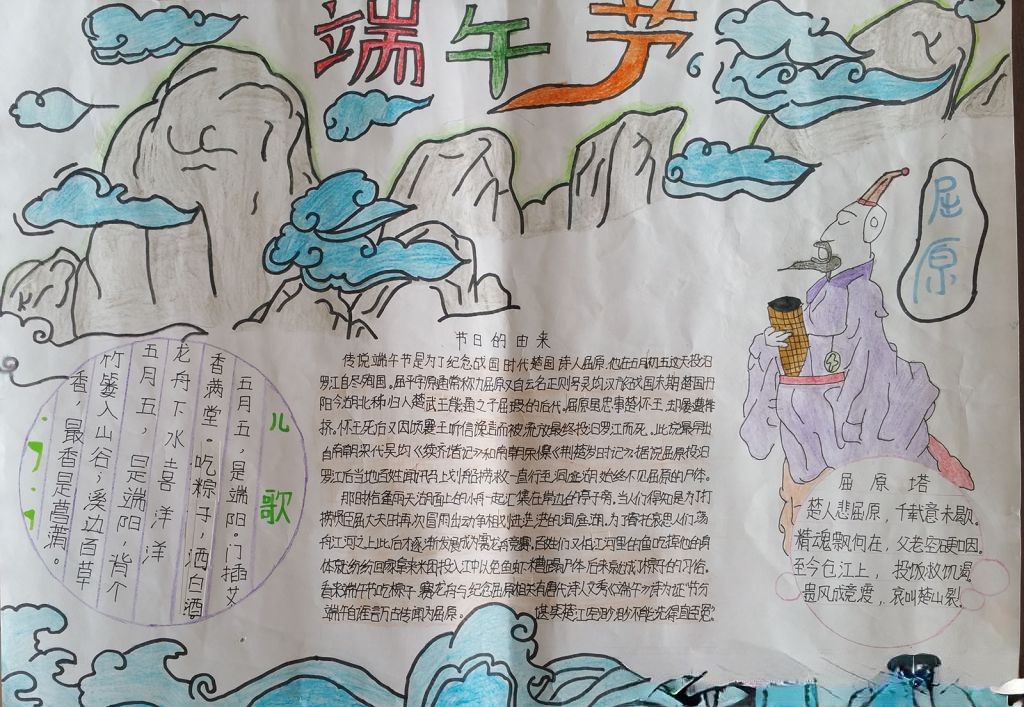 端午节
屈原
儿歌
五月五,是端阳。门插艾
香满堂。吃粽子,洒白酒
龙舟下水喜洋洋
五月五,是端阳,背个
竹篓入山谷,溪边百草
香,最香是菖蒲。
节日的由来
传说端午节是为了纪念战国时代楚国诗人屈原,他在五月初五这天投汨
罗江自尽殉国。屈平
阳今湖北秭归人楚武王熊通之子屈瑕的后代。屈原虽忠事楚怀王,却屡遭排
挤。怀王死后又因顷襄王听信谗言而被流放最终投汨罗江而死。此说最早出
自南朝梁代吴均《续齐谐记》和南朝宗懔《荆楚岁时记》据说屈原投汨
罗江后当地百姓闻讯马上划船捞救一直行至洞庭湖始终不见屈原的尸体。
那时恰逢雨天湖面上的小舟一起汇集在岸边的亭子旁,当人们得知是为了打
捞贤臣屈大夫时再次冒雨出动争相划进茫茫的洞庭湖。为了寄托哀思人们荡
舟江河之上此后才逐渐发展成为龙舟竞赛。百姓们又怕江河里的鱼吃掉他的身
体就纷纷回家拿来米团投入江中以免鱼虾糟蹋屈原尸体后来就成了粽子的习俗。
看来端午节吃粽子,赛龙舟与纪念屈原相关有唐代诗人文秀《端午》为证节分
端午自谁言万古传闻为屈原。堪笑楚江空渺渺不能洗得直臣冤
屈原塔
楚人悲屈原,千载意未歇。
精魂飘何在,父老空哽咽。
至今仓江上,投饭救饥渴
遗风成竞渡,哀叫楚山裂。